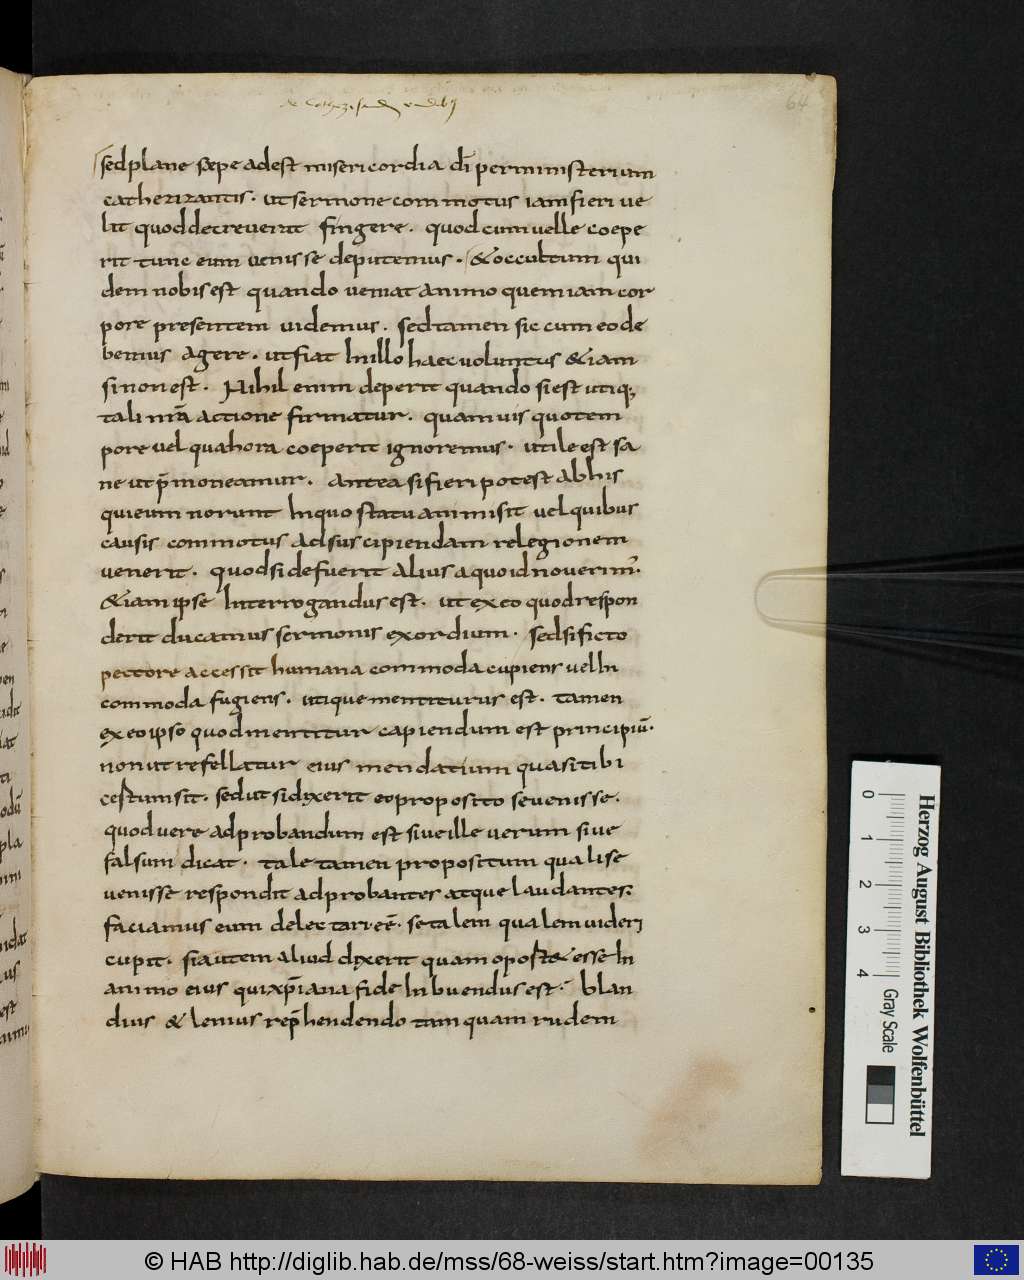 64
sedplane sæpe adest misericordia dī perministerium
catherizantis. utsermone commotus iamfieri ve
lit quoddecreverat fingere. quodcumvelle coepe
rit tunc eum venisse deputemus. &occultum qui
dem nobisest quando veniat animo quemiamcor
pore presentem videmus. sedtamen sic cum eo de
bemus agere. utfiat Inillo haecvoluntus &iam
sinonest. Nihil enim deperit quando siest utiq;
talinrā actione firmatur. quamvis quotem
pore velquahora coeperit ignoremus. utileest sa
ne utp̄moneamur. antea sifieripotest abhis
quieum norunt Inquo statuanimisit velquibus
causis commotus adsuscipiendam relegionem
venerit. quodsidefuerit alius aquoidnoverim̄.
&iamipse Interrogandusest. ut exeo quodrespon
derit ducamus sermonis exordium. sedsificto
pectore accessit humana commoda cupiens velIn
commoda fugiens. utique mentiturus est. tamen
exeoipso quodmentitur capiendum est principiū.
nonutrefellatur eius mendatium quasitibi
certumsit. sedutsidixerit eoproposito sevenisse.
quodvere adprobandum est siveille verum sive
falsum dicat. tale tamen propositum qualise
venisse respondit adprobantes atque laudantes.
faciamus eum delectari eē. setalem qualemvideri
cupit. siautem aliud dixerit quamoport& esse In
animo eius quixp̄iana fide Inbuendusest. blan
dius & lenius rep̄hendendo tamquam rudem
0
1
2
3
4
Gray Scale
Herzog August Bibliothek Wolfenbüttel
© HAB http://diglib.hab.de/mss/68-weiss/start.htm?image=00135